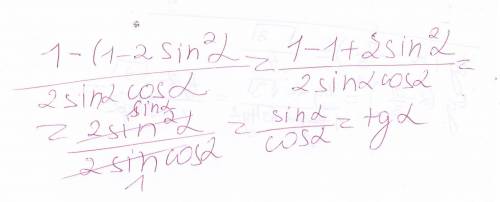 1 - (1 - 2 sin²α / 2 sinα cosα = 1 - 1 + 2 sin²α / 2 sinα cosα =
= 2 sin²α / 2 sin cosα = sinα / cosα = tg α
sinα
1